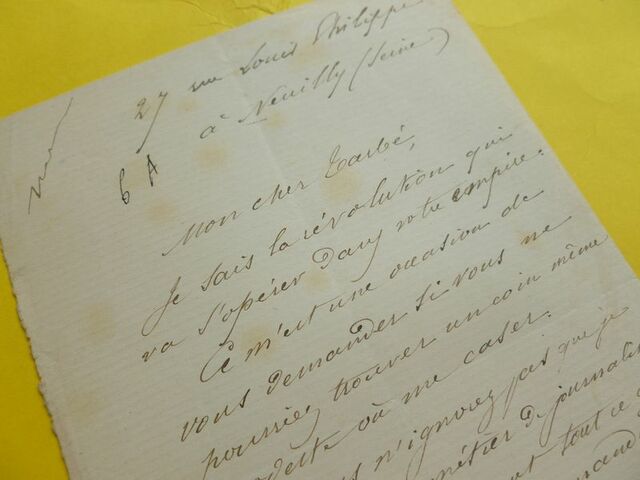 27 rue Louis Philippe
à Neuilly (Seine)
6 A
Mon cher Tarbé,
Je sais la révolution qui
va s'opérer dans votre empire.
Ce m'est une occasion de
vous demander si vous ne
pourriez trouver un coin même
modeste où me caser.
Vous n'ignorez pas que je
métier de journali
tout ce